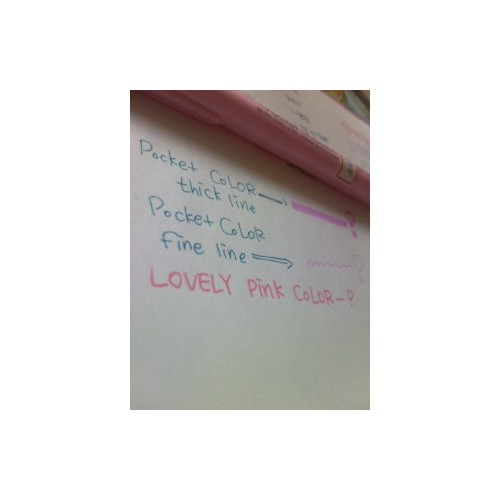 Pocket COLOR
thick line ?
Pocket COLOR
fine line ?
LOVELY Pink COLOR-?